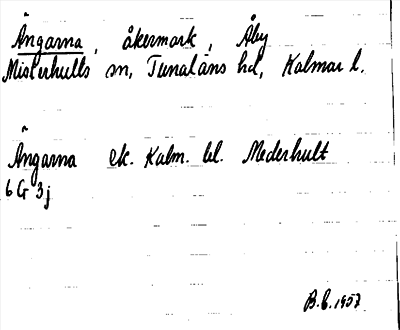 Ängarna, åkermark, Åby
Misterhults sn, Tunaläns hd, Kalmar l.
Ängarna ek. Kalm. bl. Mederhult
6 G 3j
B.C. 1957